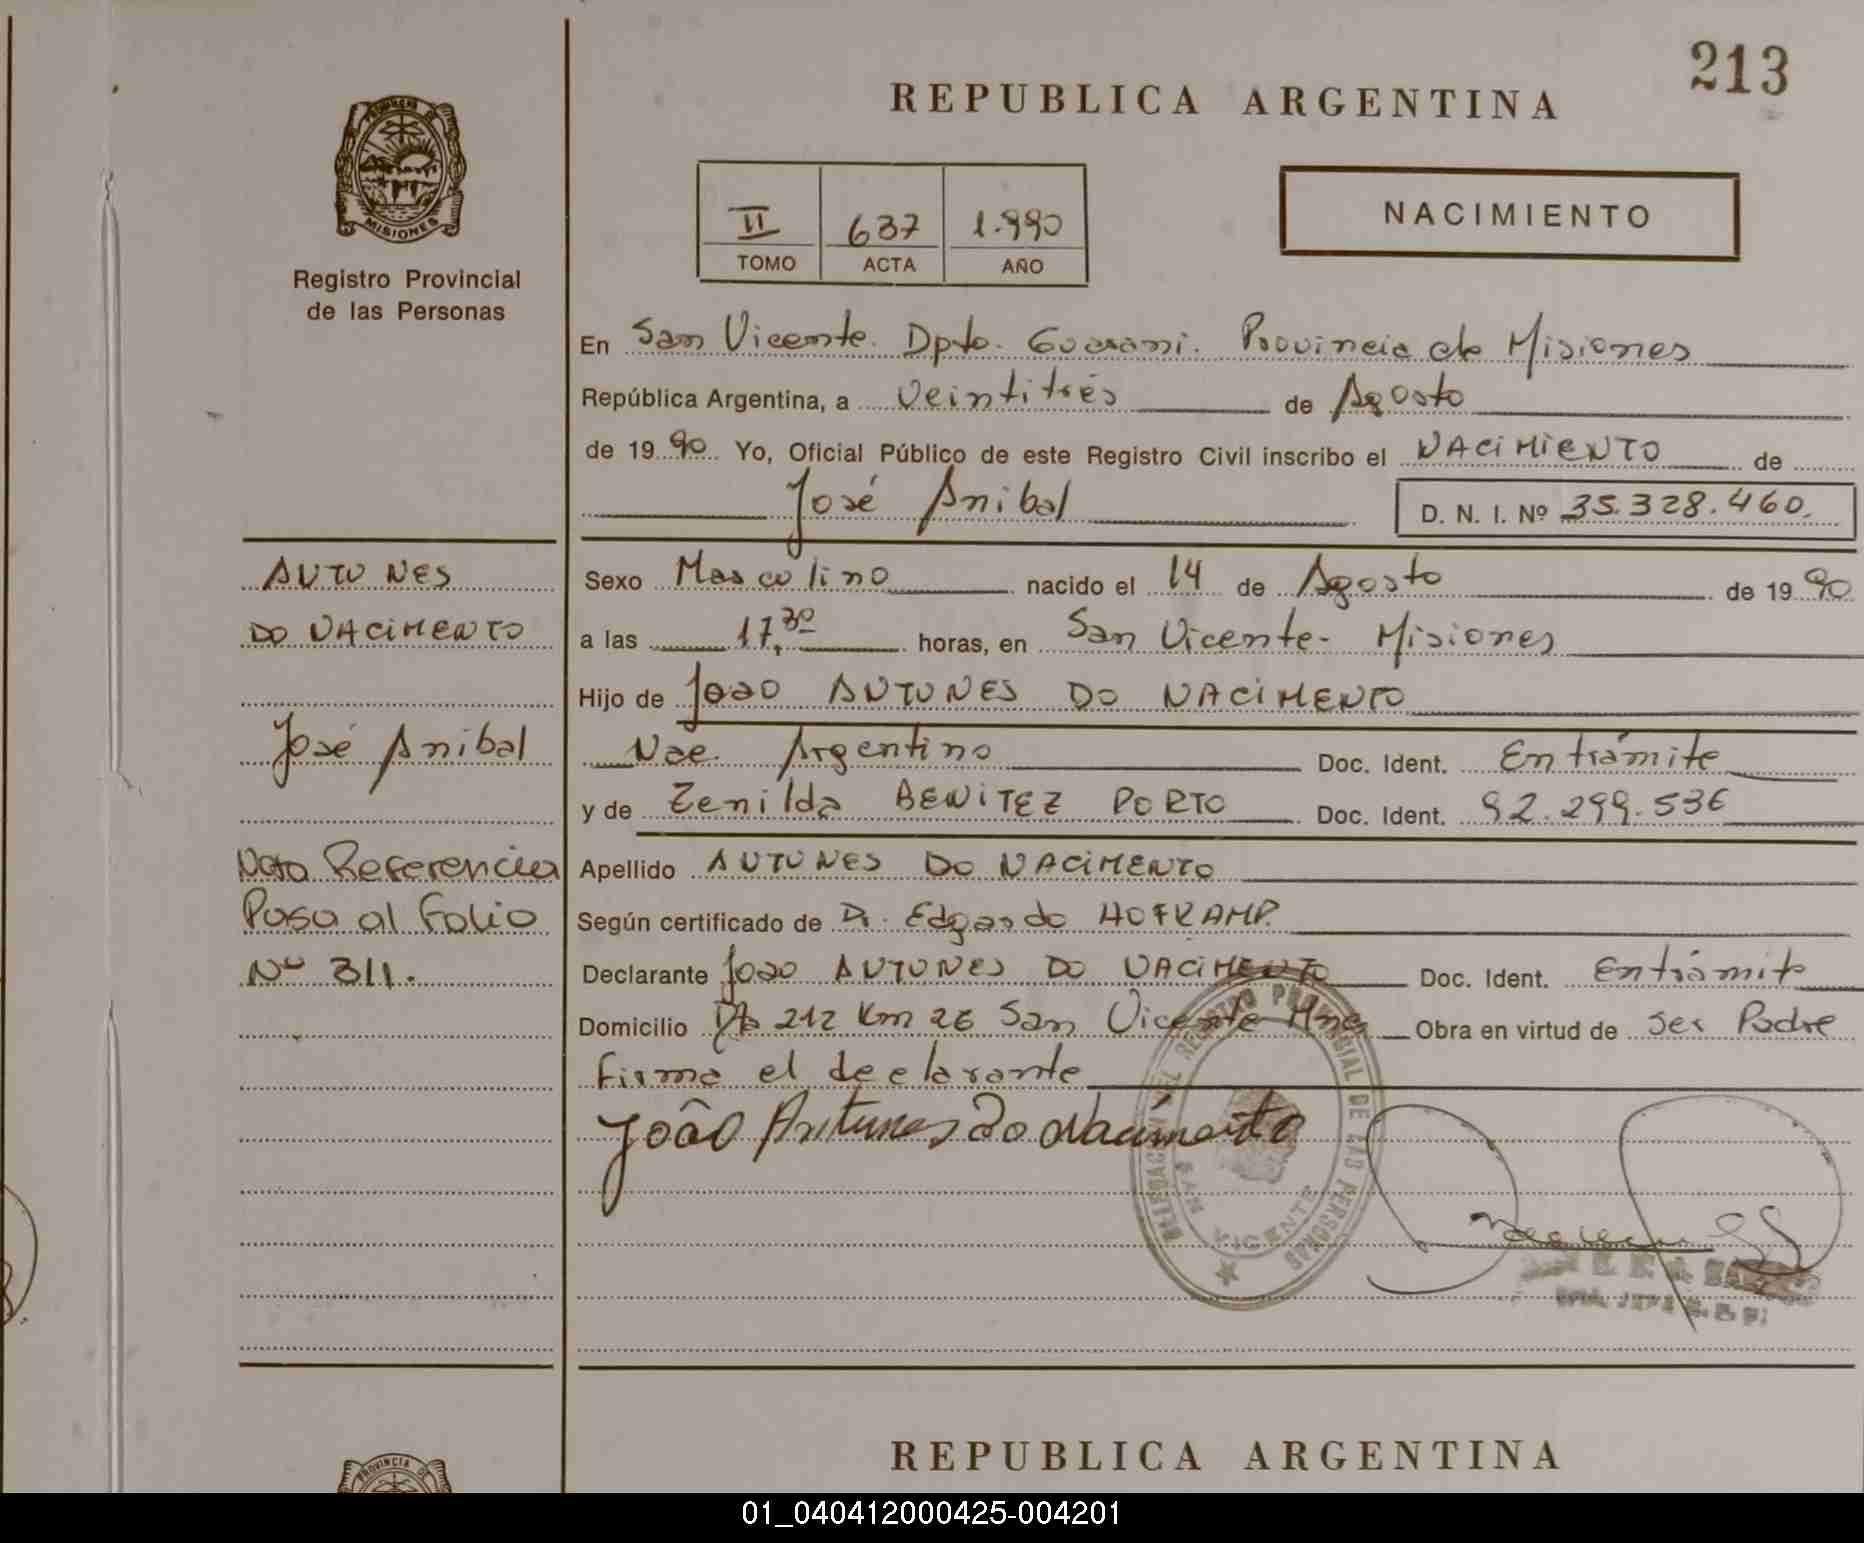 213
REPUBLICA ARGENTINA
PROVINCIA DE
MISIONES
Registro Provincial
de las Personas
II 637 1.990
TOMO ACTA AÑO
NACIMIENTO
En San Vicente. Dpto. Guarani. Provincia de Misiones
República Argentina, a Veintitrés de Agosto
de 1990 Yo, Oficial Público de este Registro Civil inscribo el NACIMIENTO de
José Anibal
D. N. I. Nº 35.328.460.
ANTUNES
DO NACIMENTO
José Anibal
Nota Referencia
Pasa al Folio
Nº 311.
Sexo Masculino nacido el 14 de Agosto de 1990
a las 17,30 horas, en San Vicente - Misiones
Hijo de Joao ANTUNES DO NACIMENTO
Nac. Argentino Doc. Ident. En trámite
y de Zenilda BENITEZ PORTO Doc. Ident. 92.299.536
Apellido ANTUNES DO NACIMENTO
Según certificado de Dr. Edgardo HOFKAMP.
Declarante Joao ANTUNES DO NACIMENTO Doc. Ident. En trámite
Domicilio Rta 212 Km 26 San Vicente Mnes Obra en virtud de ser Padre
Firma el declarante
João Antunes do Nacimento
DELEGACION DEL REGISTRO PROVINCIAL DE LAS PERSONAS
SAN VICENTE
REPUBLICA ARGENTINA
PROVINCIA DE
01_040412000425-004201